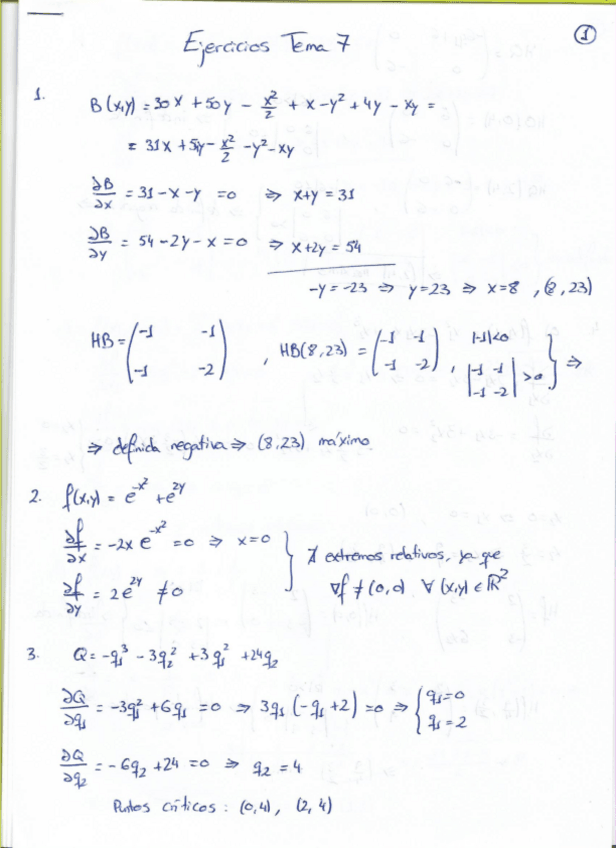 1
Ejercicios Tema 7
1. B(x,y) = 30x + 50y - x²/2 + x - y² + 4y - xy =
= 31x + 5y - x²/2 - y² - xy
∂B/∂x = 31 - x - y = 0 ⇒ x+y = 31
∂B/∂y = 54 - 2y - x = 0 ⇒ x+2y = 54
-y = -23 ⇒ y=23 ⇒ x=8 , (8, 23)
HB = (-1 -1 / -1 -2) , HB(8,23) = (-1 -1 / -1 -2) , |-1|<0 |-1 -1 / -1 -2| >0 } ⇒
⇒ definida negativa ⇒ (8,23) máximo.
2. f(x,y) = e^-x² + e^2y
∂f/∂x = -2x e^-x² = 0 ⇒ x=0
∂f/∂y = 2e^2y ≠ 0
} ∄ extremos relativos, ya que
∇f ≠ (0,0) ∀ (x,y) ∈ ℝ²
3. Q = -q₁³ - 3q₂² + 3q₁² + 24q₂
∂Q/∂q₁ = -3q₁² + 6q₁ = 0 ⇒ 3q₁(-q₁+2) = 0 ⇒ { q₁=0 q₁=2
∂Q/∂q₂ = -6q₂ + 24 = 0 ⇒ q₂ = 4
Puntos críticos : (0,4), (2,4)